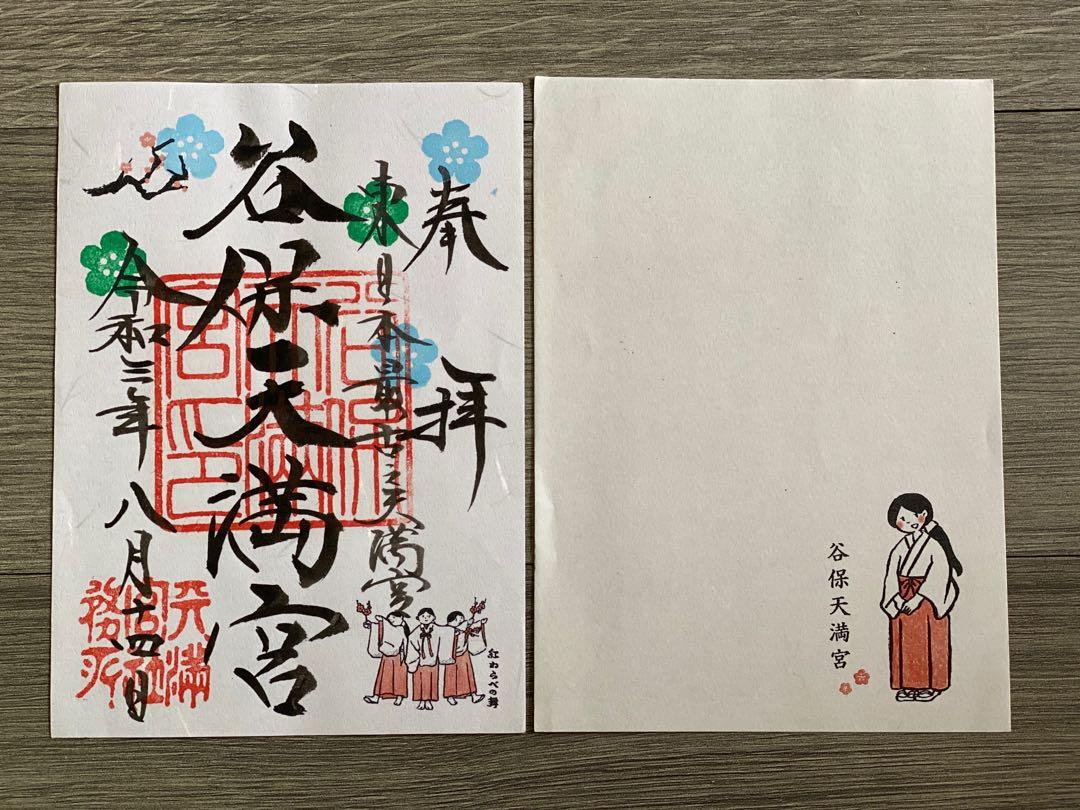 奉拝
東日本最古之天満宮
谷保天満宮
令和三年八月十四日
谷保天満宮印
天満宮社務所
紅わらべの舞
谷保天満宮